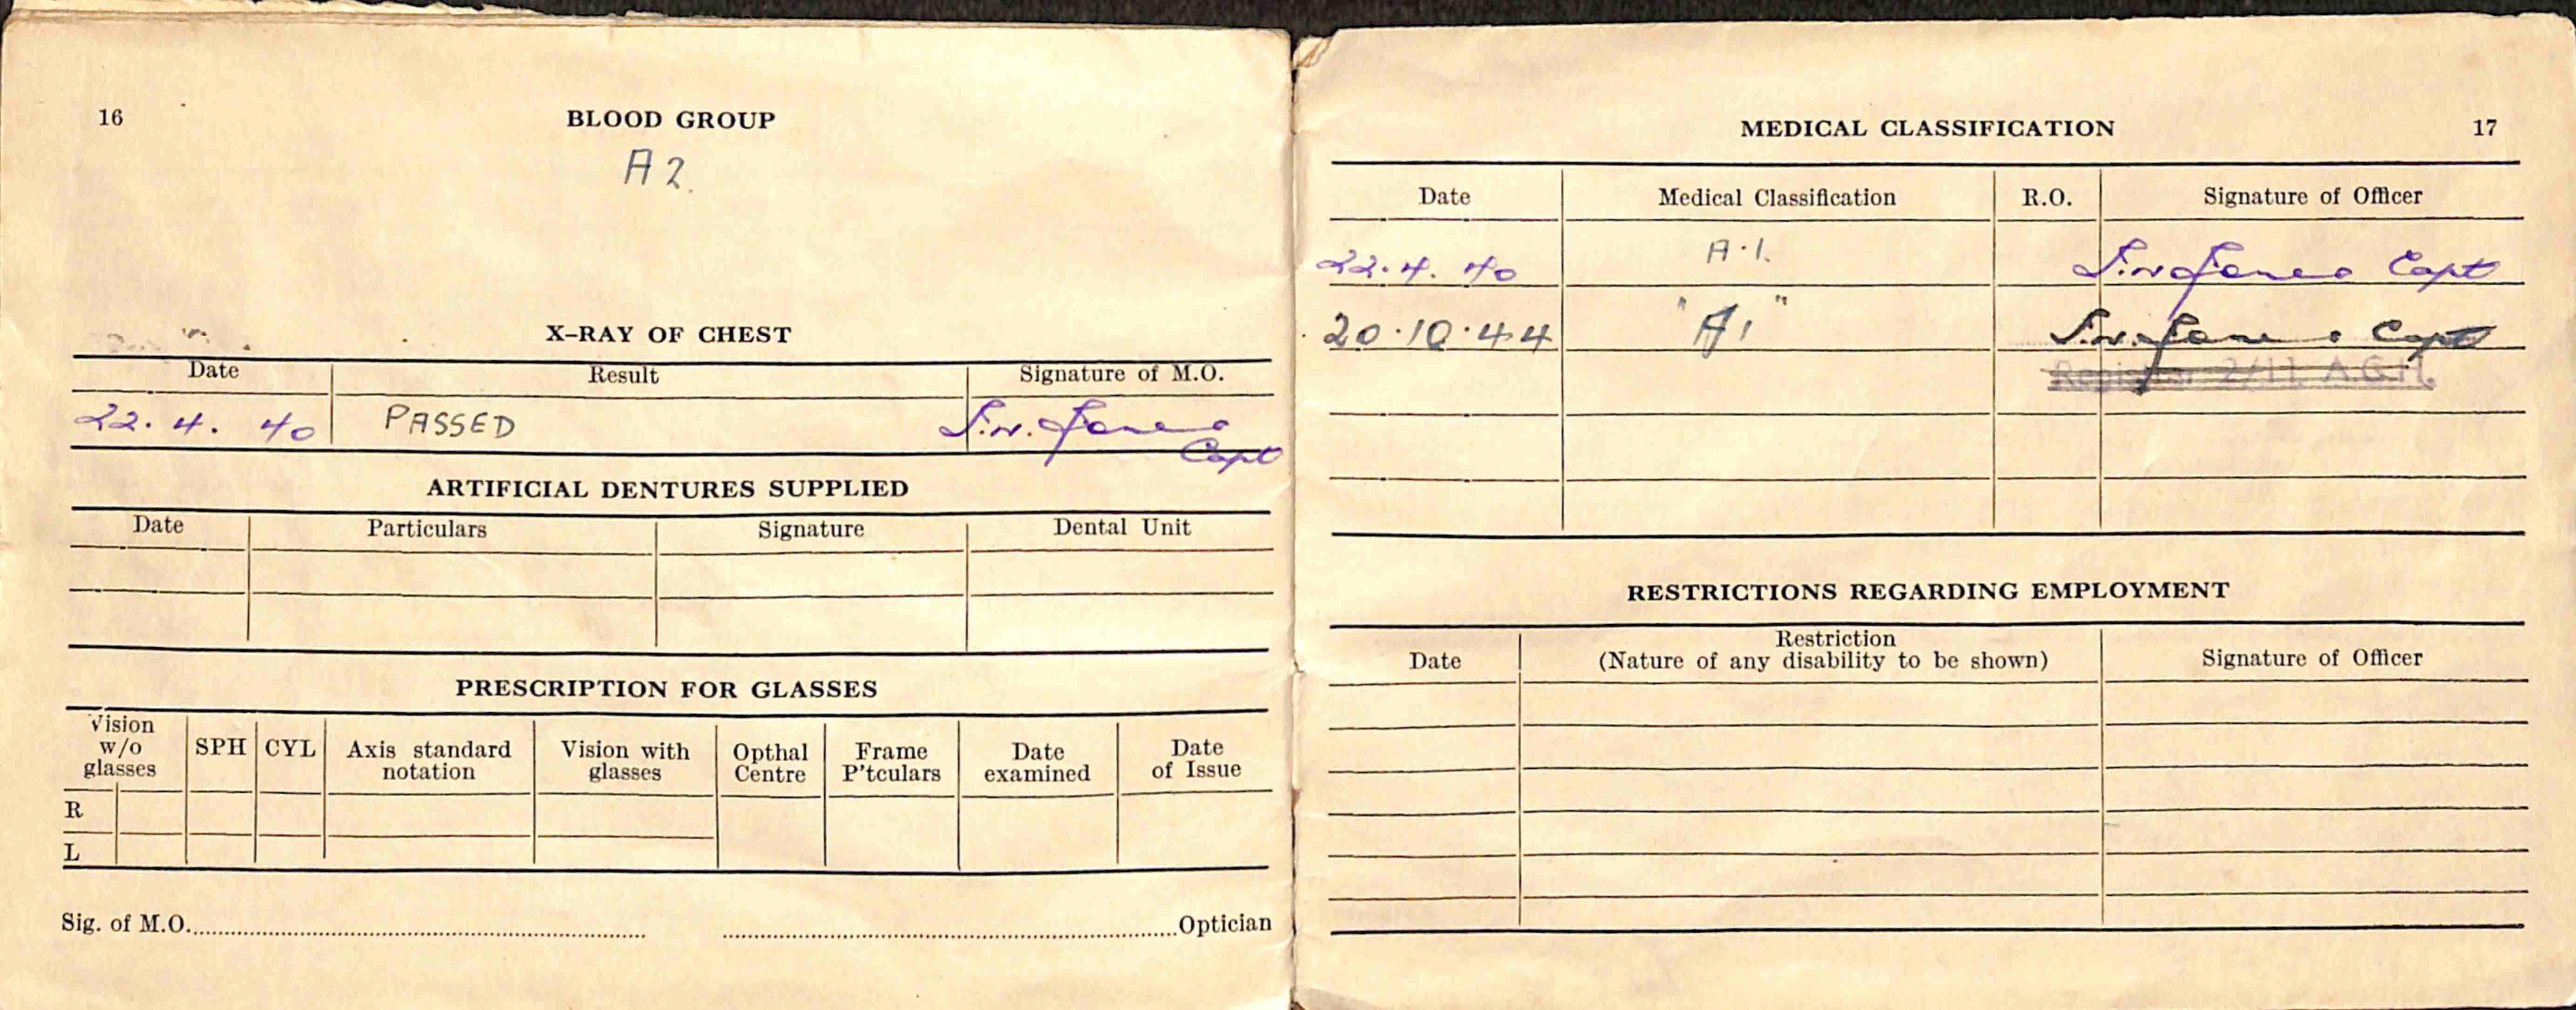 16
BLOOD GROUP
A2.
X-RAY OF CHEST
Date Result Signature of M.O.
22. 4. 40 PASSED S.W. Jones
Capt
ARTIFICIAL DENTURES SUPPLIED
Date Particulars Signature Dental Unit
PRESCRIPTION FOR GLASSES
Vision
w/o
glasses
SPH CYL
Axis standard
notation
Vision with
glasses
Opthal
Centre
Frame
P'tculars
Date
examined
Date
of Issue
R
L
Sig. of M.O. Optician
MEDICAL CLASSIFICATION 17
Date Medical Classification R.O. Signature of Officer
22. 4. 40 A.1. S.W. Jones Capt
20.10.44 "A1" S.W. Jones Capt
Registrar 2/11 A.G.H.
RESTRICTIONS REGARDING EMPLOYMENT
Date
Restriction
(Nature of any disability to be shown)
Signature of Officer